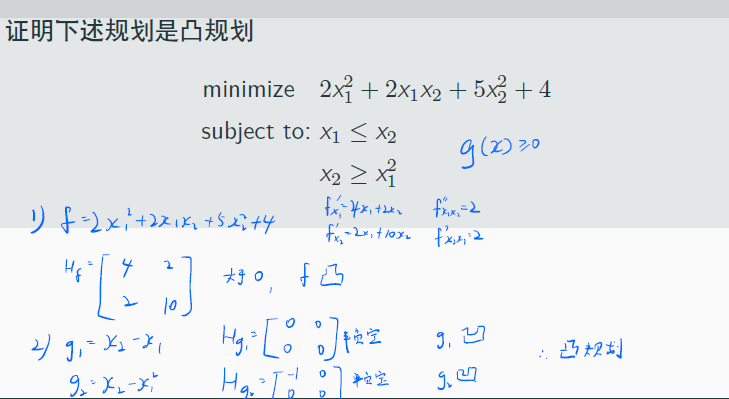 证明下述规划是凸规划
minimize 2x₁² + 2x₁x₂ + 5x₂² + 4
subject to: x₁ ≤ x₂
x₂ ≥ x₁²
g(x)≥0
1) f=2x₁²+2x₁x₂+5x₂²+4
f'ₓ₁=4x₁+2x₂ f''ₓ₁ₓ₂=2
f'ₓ₂=2x₁+10x₂ f''ₓ₂ₓ₁=2
H_f=[4 2
2 10] 大于0, f 凸
2) g₁=x₂-x₁ H_g₁=[0 0
0 0] 半负定 g₁ 凹 ∴ 凸规划
g₂=x₂-x₁² H_g₂=[-1 0
0 0] 半负定 g₂ 凹